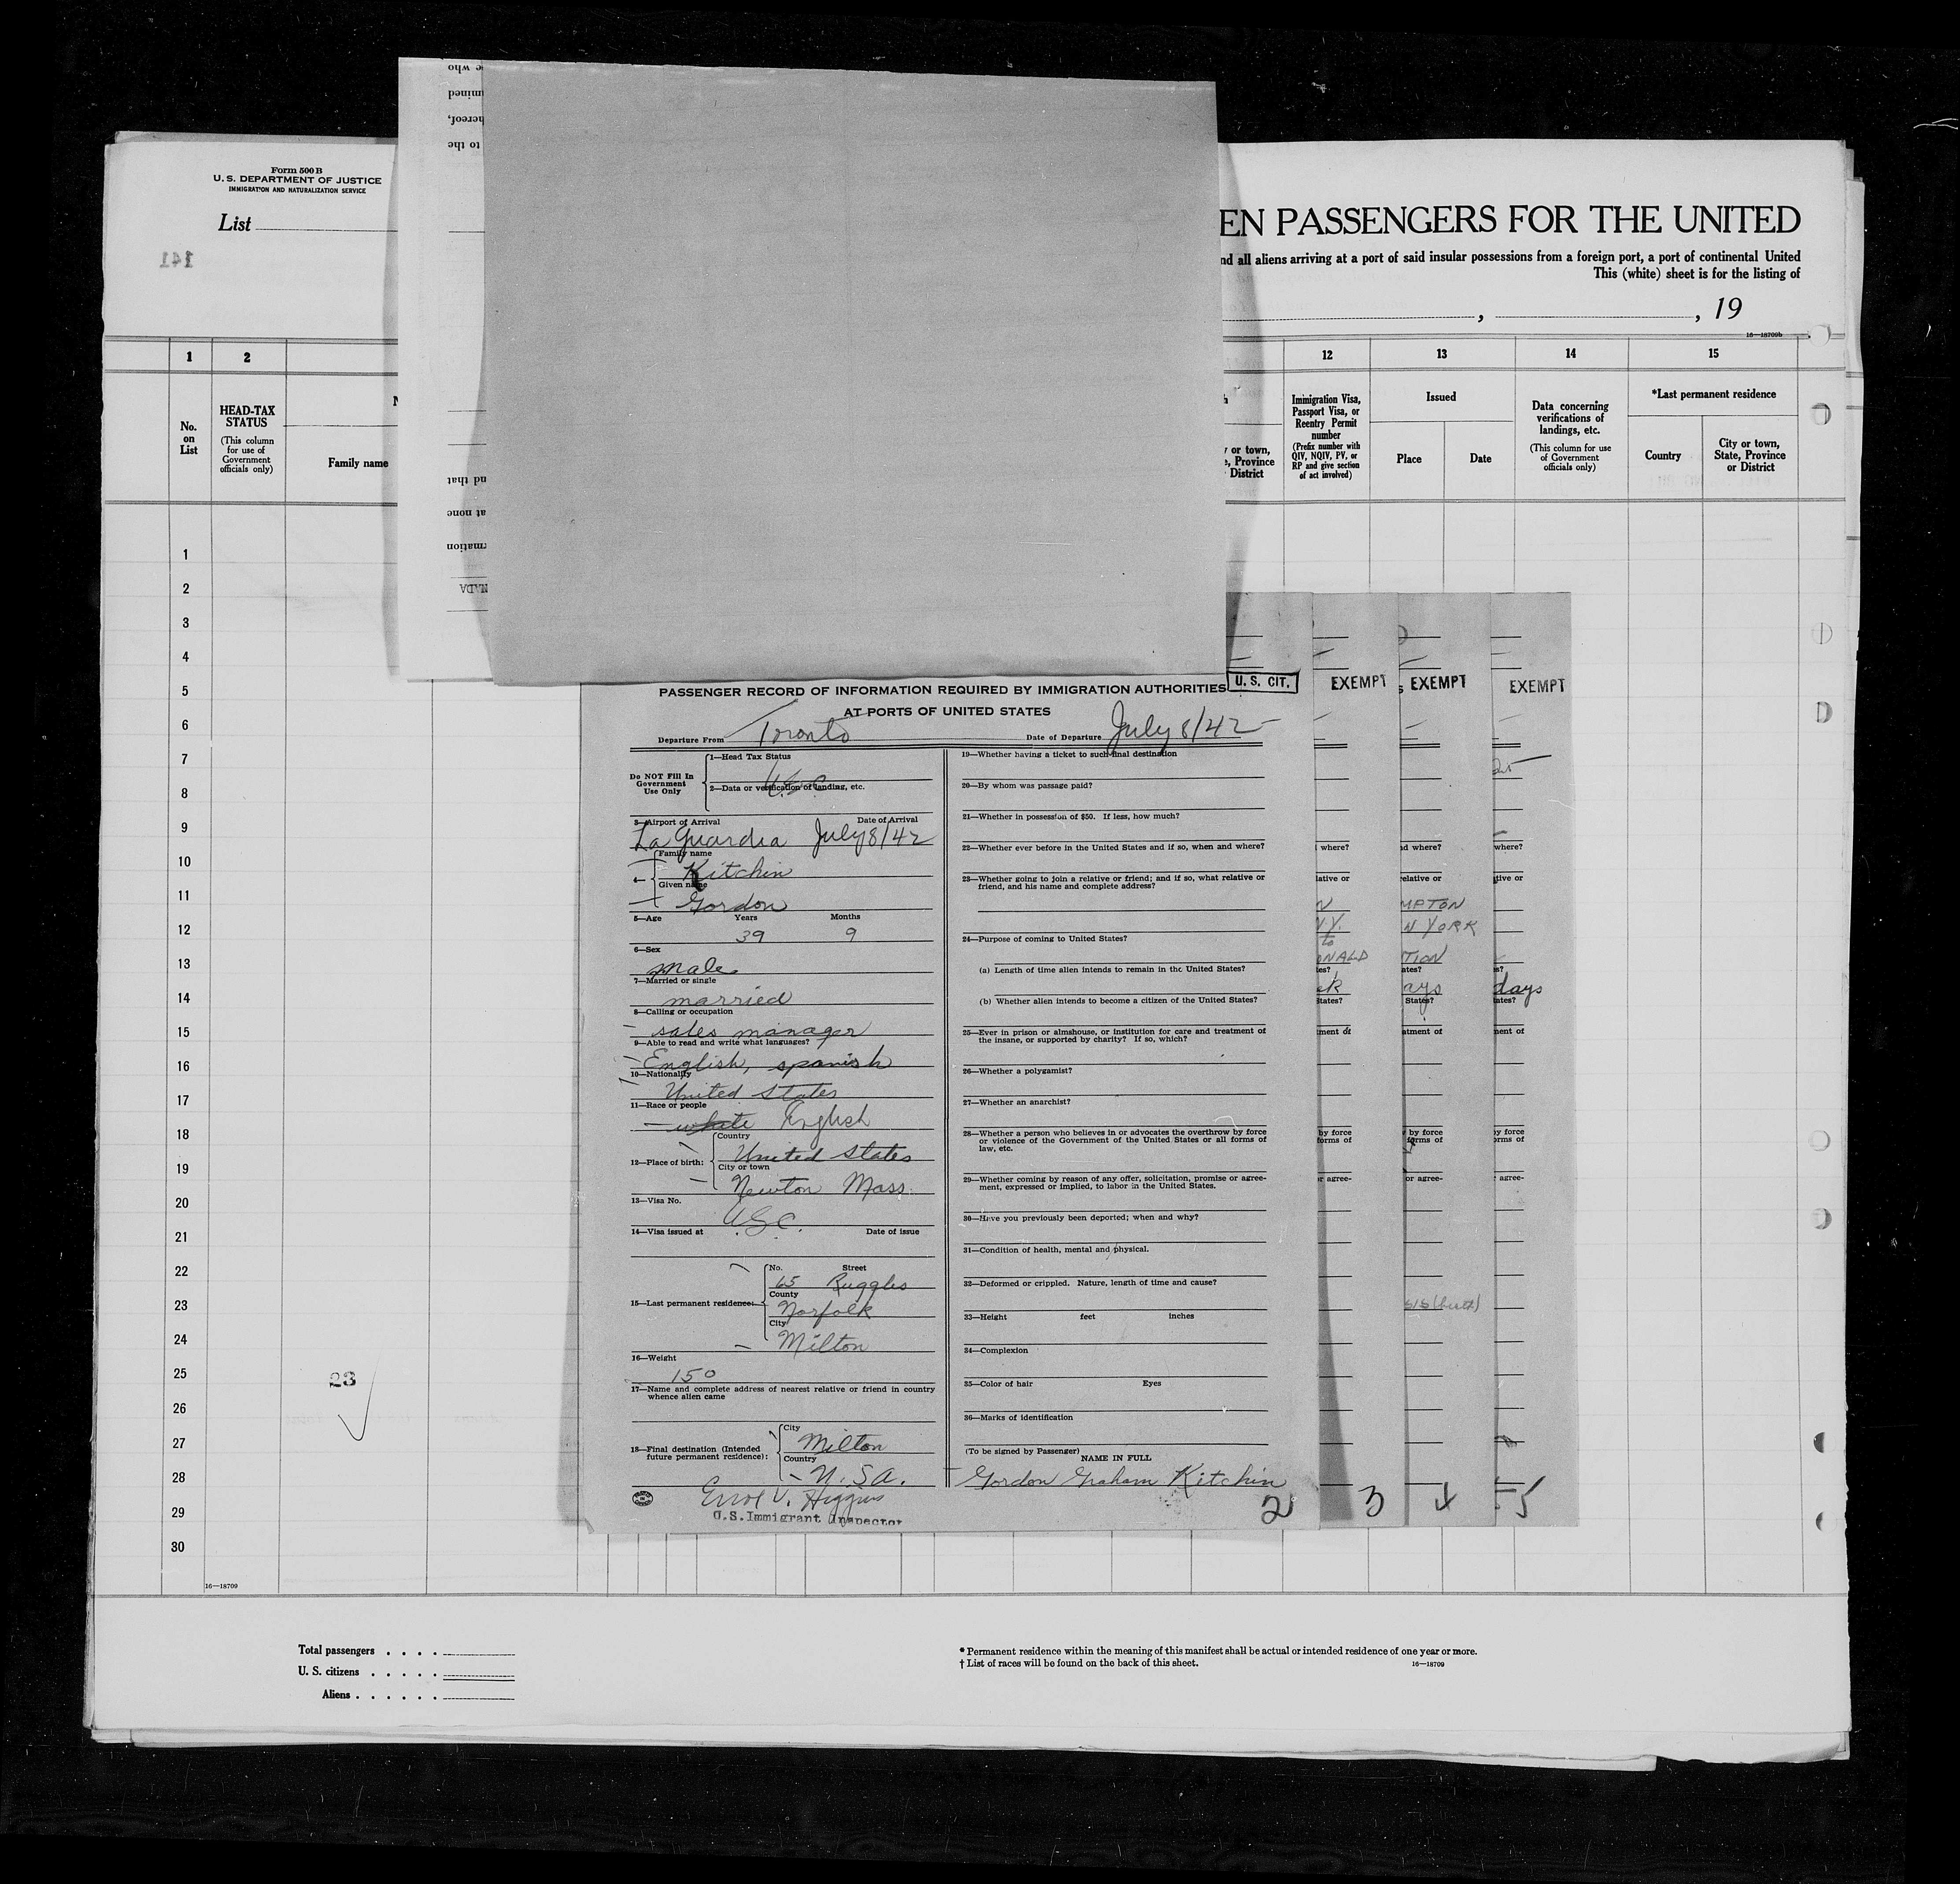 Form 500 B
U. S. DEPARTMENT OF JUSTICE
IMMIGRATION AND NATURALIZATION SERVICE
List
141
EN PASSENGERS FOR THE UNITED
nd all aliens arriving at a port of said insular possessions from a foreign port, a port of continental United
This (white) sheet is for the listing of
, , 19
16—18709b
1 2 12 13 14 15
No. on List
HEAD-TAX STATUS
(This column for use of Government officials only)
Family name
y or town,
e, Province
District
Immigration Visa, Passport Visa, or Reentry Permit number
(Prefix number with QIV, NQIV, PV, or RP and give section of act involved)
Issued
Place Date
Data concerning verifications of landings, etc.
(This column for use of Government officials only)
*Last permanent residence
Country
City or town, State, Province or District
e who
mined
hereof,
to the
nd that
at none
rmation
NADA
1
2
3
4
5
6
7
8
9
10
11
12
13
14
15
16
17
18
19
20
21
22
23
24
25
26
27
28
29
30
23
16—18709
PASSENGER RECORD OF INFORMATION REQUIRED BY IMMIGRATION AUTHORITIES
U. S. CIT.
AT PORTS OF UNITED STATES
Departure From Toronto Date of Departure July 8/42
Do NOT Fill In Government Use Only
1—Head Tax Status
U.S.C.
2—Data or verification of landing, etc.
3—Airport of Arrival Date of Arrival
La Guardia July 8/42
4— Family name
Kitchin
Given name
Gordon
5—Age Years Months
39 9
6—Sex
male
7—Married or single
married
8—Calling or occupation
sales manager
9—Able to read and write what languages?
English, spanish
10—Nationality
United States
11—Race or people
white English
12—Place of birth: Country
United States
City or town
Newton Mass.
13—Visa No.
U.S.C.
14—Visa issued at Date of issue
15—Last permanent residence: No. Street
65 Ruggles
County
Norfolk
City
Milton
16—Weight
150
17—Name and complete address of nearest relative or friend in country whence alien came
18—Final destination (Intended future permanent residence): City
Milton
Country
U.S.A.
Errol V. Higgins
U.S.Immigrant Inspector
19—Whether having a ticket to such final destination
20—By whom was passage paid?
21—Whether in possession of $50. If less, how much?
22—Whether ever before in the United States and if so, when and where?
23—Whether going to join a relative or friend; and if so, what relative or
friend, and his name and complete address?
24—Purpose of coming to United States?
(a) Length of time alien intends to remain in the United States?
(b) Whether alien intends to become a citizen of the United States?
25—Ever in prison or almshouse, or institution for care and treatment of
the insane, or supported by charity? If so, which?
26—Whether a polygamist?
27—Whether an anarchist?
28—Whether a person who believes in or advocates the overthrow by force
or violence of the Government of the United States or all forms of
law, etc.
29—Whether coming by reason of any offer, solicitation, promise or agree-
ment, expressed or implied, to labor in the United States.
30—Have you previously been deported; when and why?
31—Condition of health, mental and physical.
32—Deformed or crippled. Nature, length of time and cause?
33—Height feet inches
34—Complexion
35—Color of hair Eyes
36—Marks of identification
(To be signed by Passenger)
NAME IN FULL
Gordon Graham Kitchin
2
EXEMPT
where?
lative or
N.Y.
to
ONALD
tes?
ek
States?
tment of
by force
forms of
r agree-
3
EXEMPT
nd where?
relative or
MPTON
W YORK
TION
ates?
ays
States?
atment of
by force
forms of
or agree-
4
EXEMPT
where?
tive or
s?
days
ates?
ment of
by force
orms of
agree-
5
Total passengers . . . .
U. S. citizens . . . . .
Aliens . . . . . .
* Permanent residence within the meaning of this manifest shall be actual or intended residence of one year or more.
† List of races will be found on the back of this sheet.
16—18709